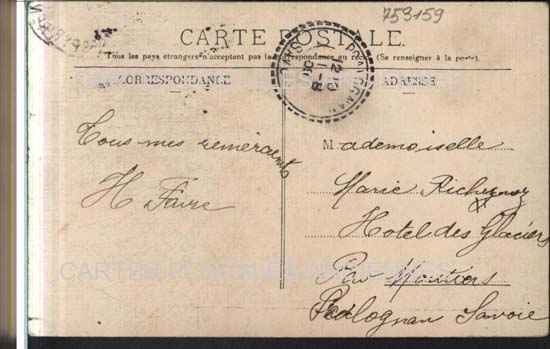 753159
CARTE POSTALE.
Tous les pays étrangers n'acceptent pas la correspondance au recto (Se renseigner à la poste).
CORRESPONDANCE
ADRESSE
Tous mes remerciements
H. Favre
Mademoiselle
Marie
Hotel des Glaciers
Par Moutiers
Pralognan Savoie
CARTES POSTALES ANCIENNES